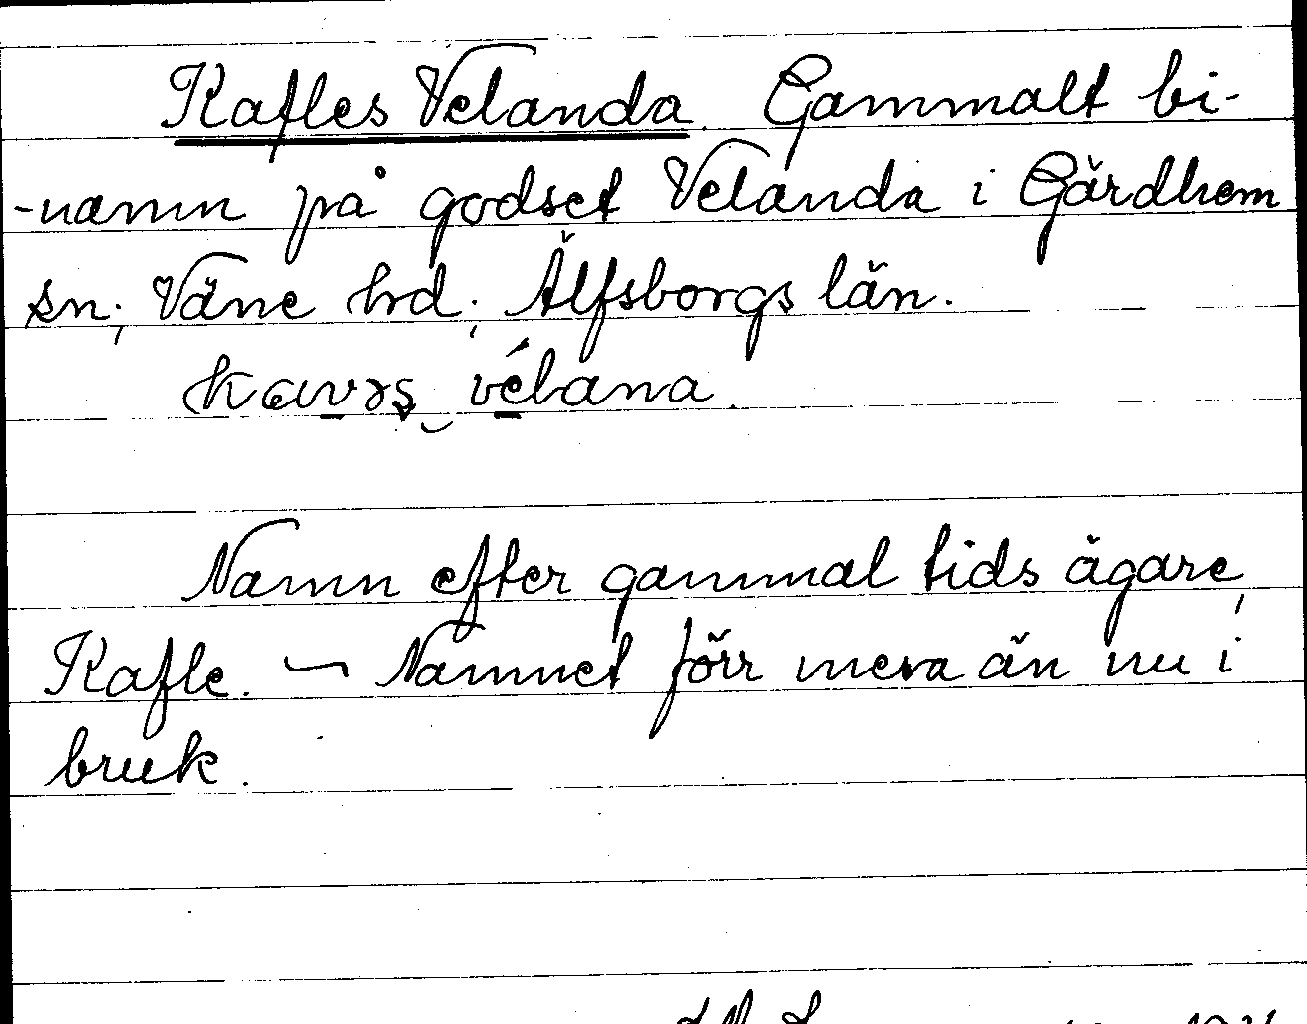 Kafles Velanda. Gammalt bi-
-namn på godset Velanda i Gärdhem
sn; Väne hrd; Älfsborgs län.
kavəş vélana.
Namn efter gammal tids ägare,
Kafle. — Namnet förr mera än nu i
bruk.